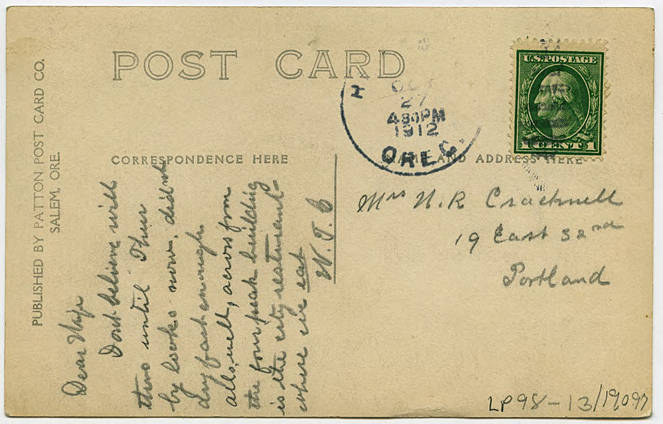 PUBLISHED BY PATTON POST CARD CO.
SALEM, ORE.
POST CARD
CORRESPONDENCE HERE
NAME AND ADDRESS HERE
U.S. POSTAGE
1 CENT 1
H
OCT
27
4 30 PM
1912
OREG.
Dear Wife
Dont believe will
thru until Thur
by looks now, didnt
dry fast enough
alls well, across from
the four peak building
is the city resturant-
where we eat
W. T. C
Mrs W. R Cracknell
19 East 32nd
Portland
LP98-13/19097